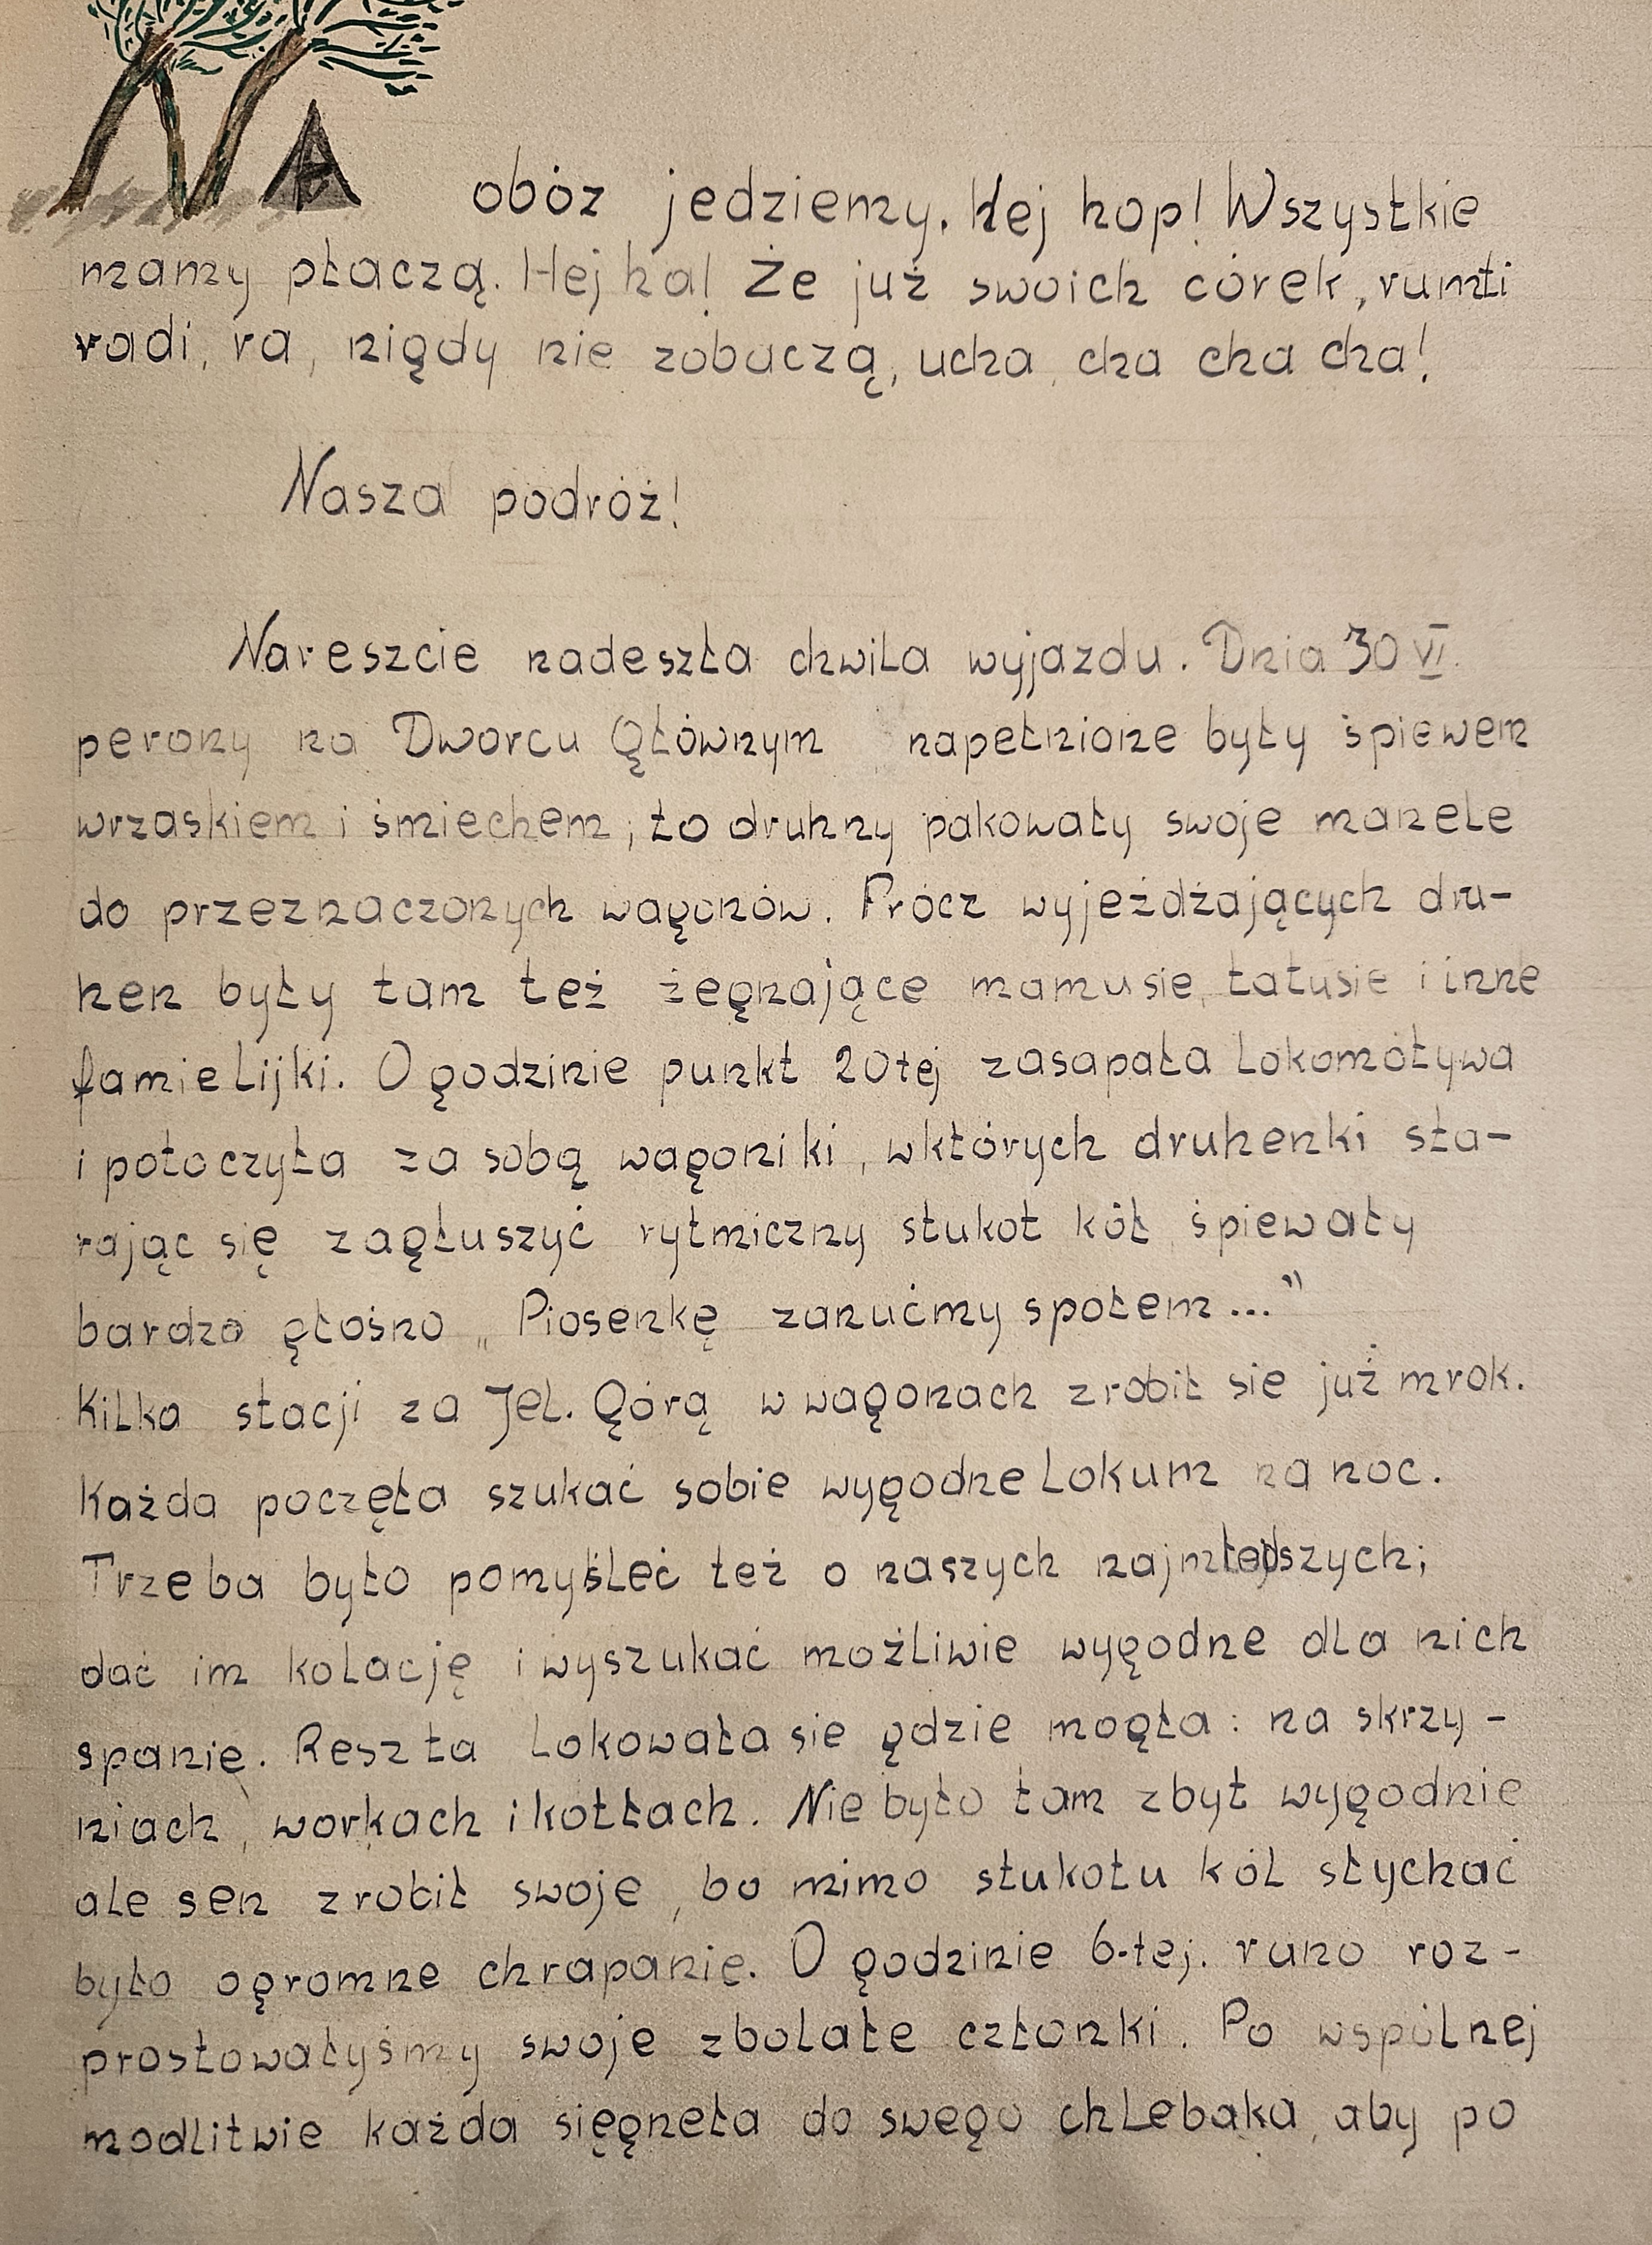 NA obóz jedziemy. Hej hop! Wszystkie
mamy płaczą. Hej ha! Że już swoich córek, rumti
radi, ra, nigdy nie zobaczą, ucha, cha cha cha!
Nasza podróż!
Nareszcie nadeszła chwila wyjazdu. Dnia 30 VI.
perony na Dworcu Głównym napełnione były śpiewem
wrzaskiem i śmiechem; to druhny pakowały swoje manele
do przeznaczonych wagonów. Prócz wyjeżdżających dru-
hen były tam też żegnające mamusie, tatusie i inne
famielijki. O godzinie punkt 20tej zasapała lokomotywa
i potoczyła za sobą wagoniki, wktórych druhenki sta-
rając się zagłuszyć rytmiczny stukot kół śpiewały
bardzo głośno „Piosenkę zanućmy społem..."
Kilka stacji za Jel. Górą w wagonach zrobił sie już mrok.
Każda poczęła szukać sobie wygodne lokum na noc.
Trzeba było pomyśleć też o naszych najmłodszych;
dać im kolację i wyszukać możliwie wygodne dla nich
spanie. Reszta lokowała sie gdzie mogła: na skrzy-
niach, workach i kotłach. Nie było tam zbyt wygodnie
ale sen zrobił swoje, bo mimo stukotu kół słychać
było ogromne chrapanie. O godzinie 6-tej. rano roz-
prostowałyśmy swoje zbolałe członki. Po wspólnej
modlitwie każda sięgneła do swego chlebaka, aby po